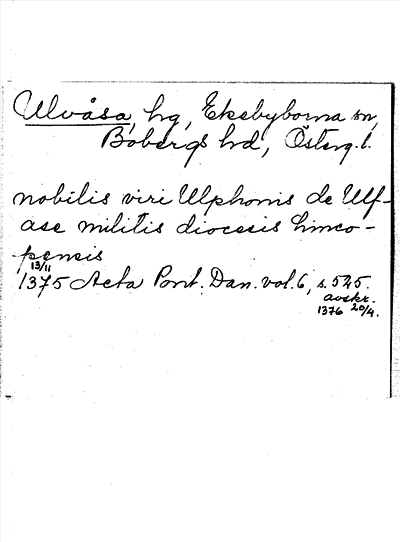 Ulvåsa, hg, Ekebyborna sn,
Bobergs hd, Österg. l.
nobilis viri Ulphonis de Ulf-
ase militis diocesis Linco-
pensis
13/11
1375 Acta Pont. Dan. vol. 6, s. 525.
avskr.
1376 20/4.